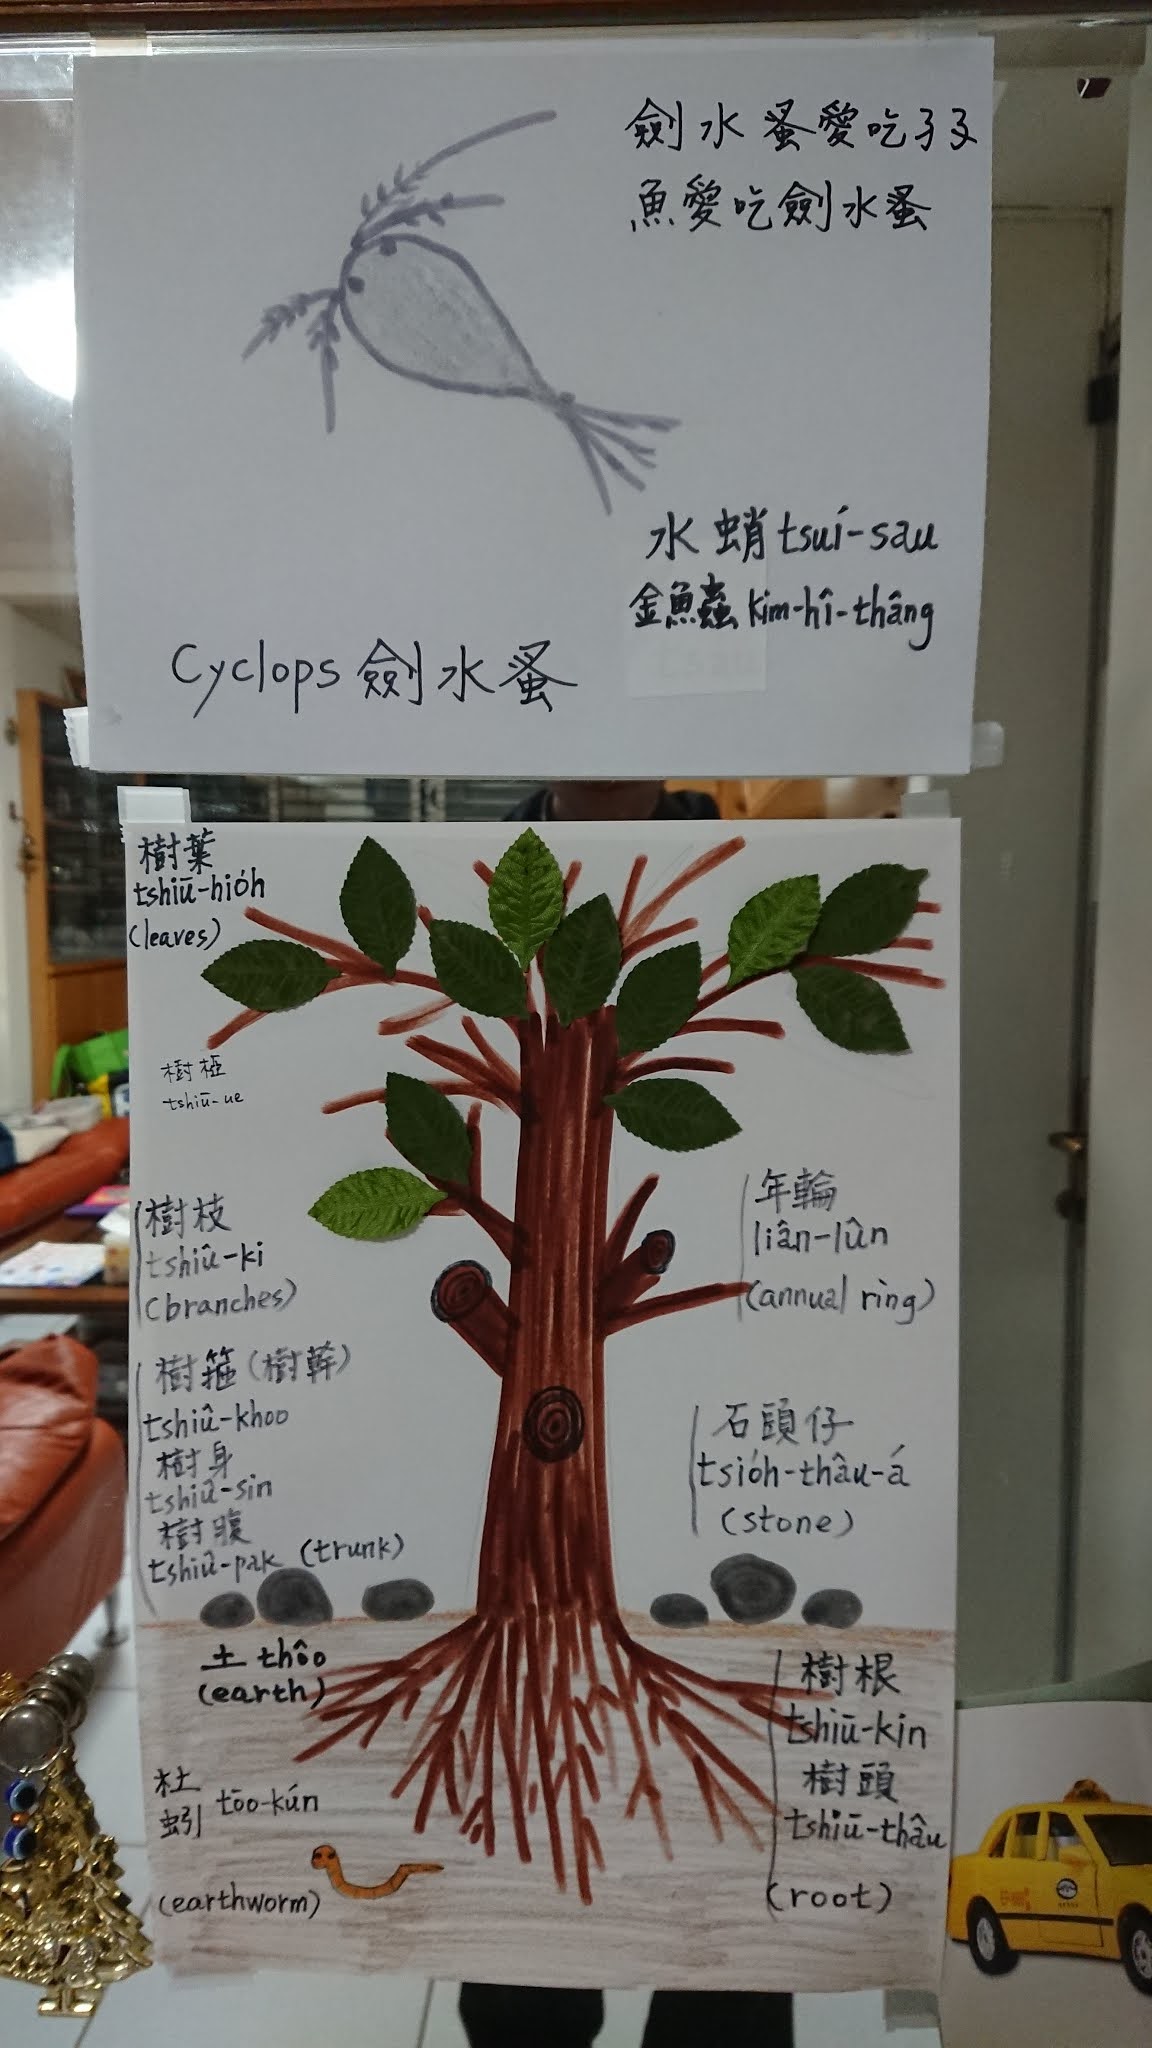 劍水蚤愛吃孑孓
魚愛吃劍水蚤
水蛸 tsuí-sau
金魚蟲 kim-hî-thâng
Cyclops 劍水蚤
樹葉
tshiū-hio̍h
(leaves)
樹椏
tshiū-ue
樹枝
tshiū-ki
(branches)
樹箍(樹幹)
tshiū-khoo
樹身
tshiū-sin
樹腹
tshiū-pak (trunk)
年輪
liân-lûn
(annual ring)
石頭仔
tsio̍h-thâu-á
(stone)
土 thôo
(earth)
杜蚓 tōo-kún
(earthworm)
樹根
tshiū-kin
樹頭
tshiū-thâu
(root)